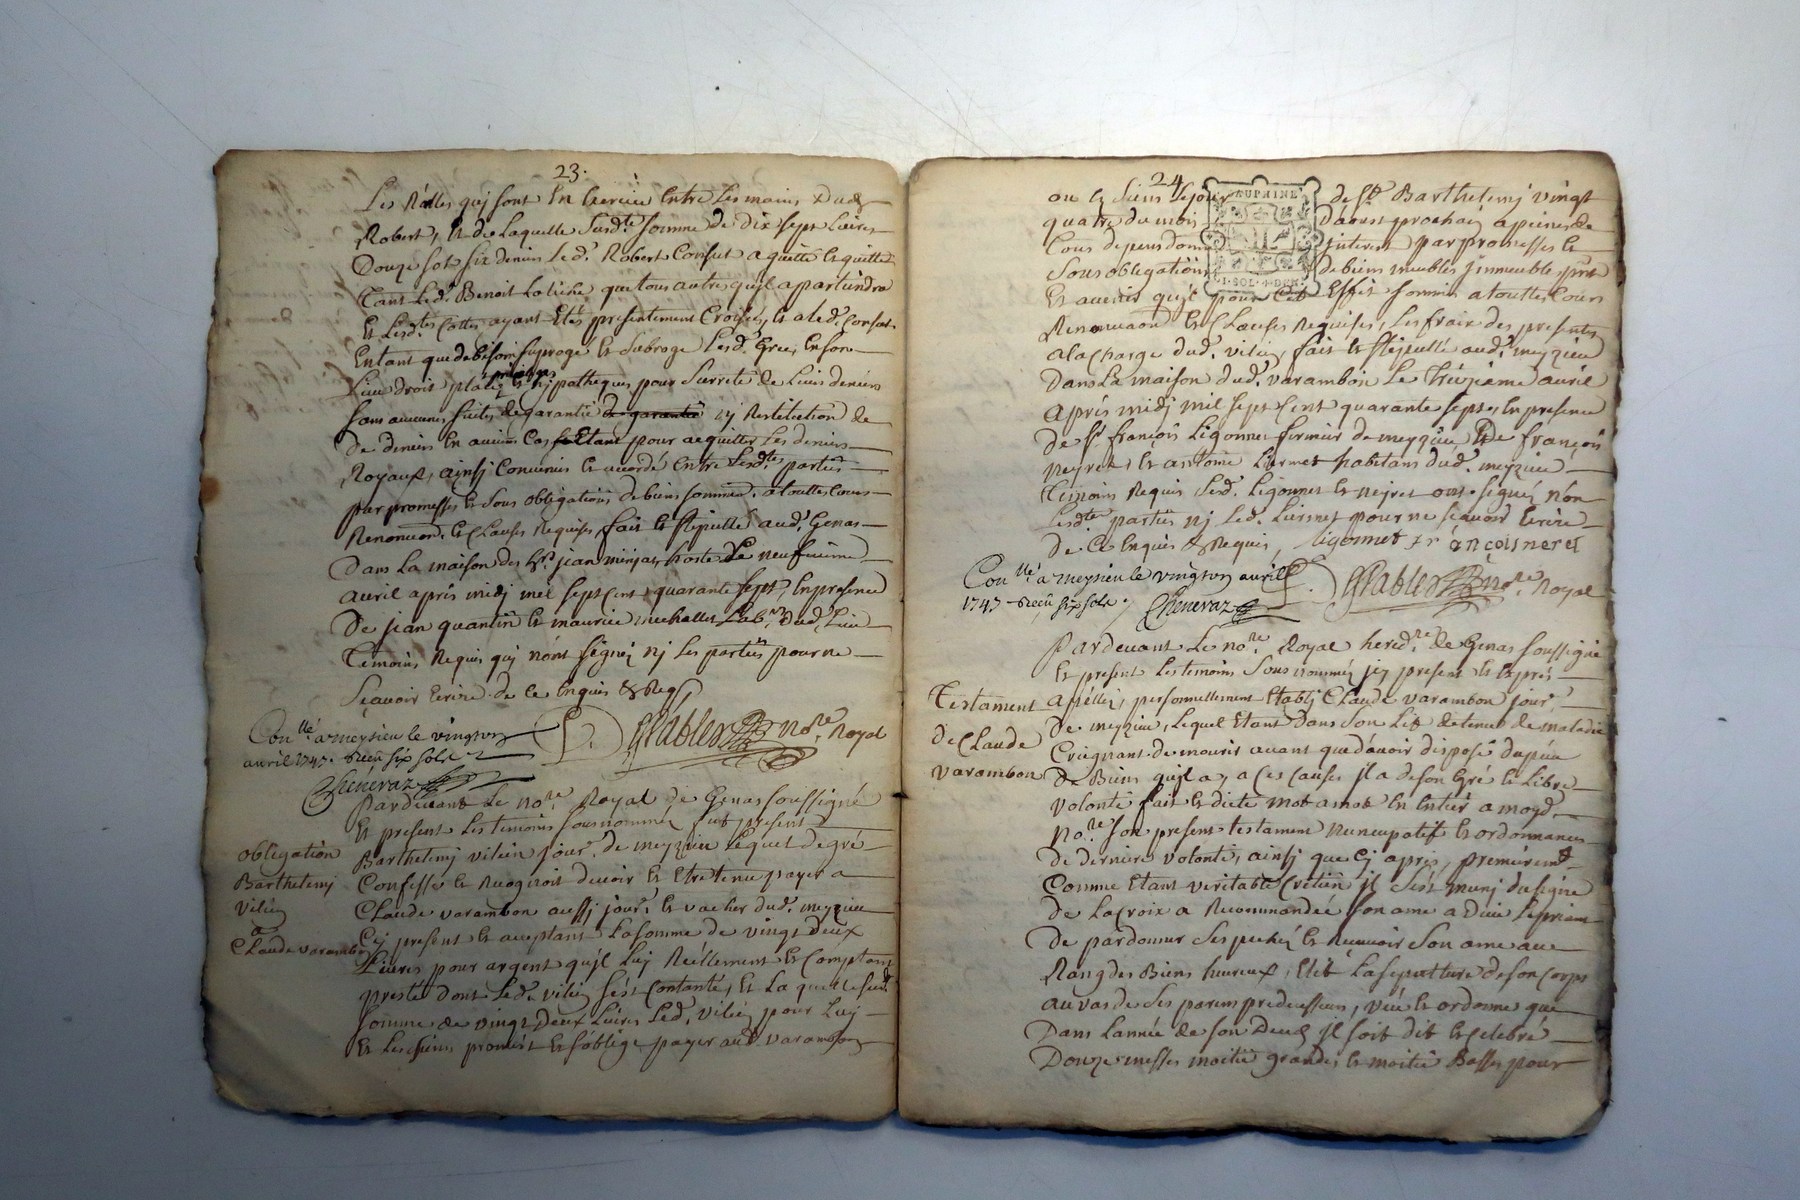 23.
Les Rálles quj sont En Exercice Entre Les mains Dud.
Robert, Et de Laquelle Susd.te somme de dix sept Livres
Douze sols six deniers Led. Robert Consul a quitté Et quitte
Tant Led. Benoit que tous autre qujl apartiendra
Et Lesd.tes Cottes ayant Etés presentement Croisés, Et a led. Consul
En tant que de besoin suprogé Et Subroge Lesd. En son
Lieu droit place privileges Et hjpotheques pour Surreté de Leurs deniers
sans aucunes suites de garantie de garantie nj Restitution de
De deniers En aucun Cas Etant pour acquitter Les deniers
Royaux, ainsj Convenus Et accordé Entre Lesd.tes parties
par promesses Et Sous obligations de biens soumiss. a toutte Cours
Renon.on. Et Clauses Requises, fait Et stipullé aud. Genas
Dans La maison des S.r jean hoste Le neufvieme
avril aprés midj mil sept Cent quarante sept, En presence
De jean quantin Et maurice Lab.rs Dud. Lieu
Temoins Requis quj n'ont signéz nj Les parties pour ne
Sçavoir Ecrire de ce Enquis & Reqs
Con.llé a meysieu le vingt
avril 1747. Reçu six sols
Cheneraz
Pablex no.re Royal
Pardevant Le no.re Royal de Genas soussigné
Et present Les temoins sousnommez fut present
obligation
Barthelemj vitien jour. de meyzieu Lequel de gré
Barthelemj
Confesse Et Recognoit devoir Et Etre tenu payer a
vitien
Claude varambon aussj jour. Et vacher dud. meyzieu
a
Cy present Et acceptant La somme de vingt deux
Claude varambon
Livres pour argent qujl Luj Réellement Et Comptant
presté dont Led. vitien s'est Contanté, Et La quelle susd.
somme de vingt deux Livres Led. vitien pour Luy
Et Les siens promést Et s'oblige payer aud. varambon
24
ou Es Siens Le jour de S.t Barthelemj vingt
quatre du mois D'aoust prochain a peines de
tous depens dom interest par promesses Et
Sous obligations de biens meubles Jmmeuble prst
Et avenir qujl pour Cet Effet soumis a touttes Cours
Renonciaon Et Clauses Requises, Les fraix des presentes
a la Charge dud. vitien, fait Et stipullé aud. meyzieu
Dans La maison dud. varambon Le treizieme avril
aprés midj mil sept Cent quarante sept, En presence
De S.r françois Ligonnet fermier de meyzieu Et De françois
neyret Et antoine habitans dud. meyzieu
Temoins Requis Lesd. Ligonnet Et neyret ont signéz non
Lesd.tes parties nj Led. pour ne sçavoir Ecrire
De Ce Enquis & Requis, ligonnet françois neret
Con.llé a meysieu le vingt avril
1747 Reçu six sols
Cheneraz
Pablex no.re Royal
Pardevant Le no.re Royal hered.re de Genas soussigné
Et present Les temoins Sous nommés jcy present Et Exprés
Testament
apéllés, personnellement Etablj Claude varambon jour.
de Claude
De meyzieu, Lequel Etant Dans Son Lit detenue de maladie
varambon
Craignant de mourir avant que d'avoir disposé du peu
De Biens qujl a, a Ces Causes jl a de son Gré Et Libre
volonté fait Et dicté mot a mot En Entier a moyd.
no.re son present testament nuncupatif Et ordonnances
de derniere volonté, ainsj que Cj aprés, premierem.t
Comme Etant veritable Cretien jl s'est munj du signe
De La Croix a Recommandée son ame a Dieu Le priant
De pardonner Ses pechéz Et Recevoir Son ame au
Rang des Biens heureux, Elit La sepulture de son Corps
au vas de Ses parens predecesseurs, veut Et ordonne que
Dans L'année de son Deced jl soit dit Et Celebré
Douze messes moitié grandes Et moitié Basses pour